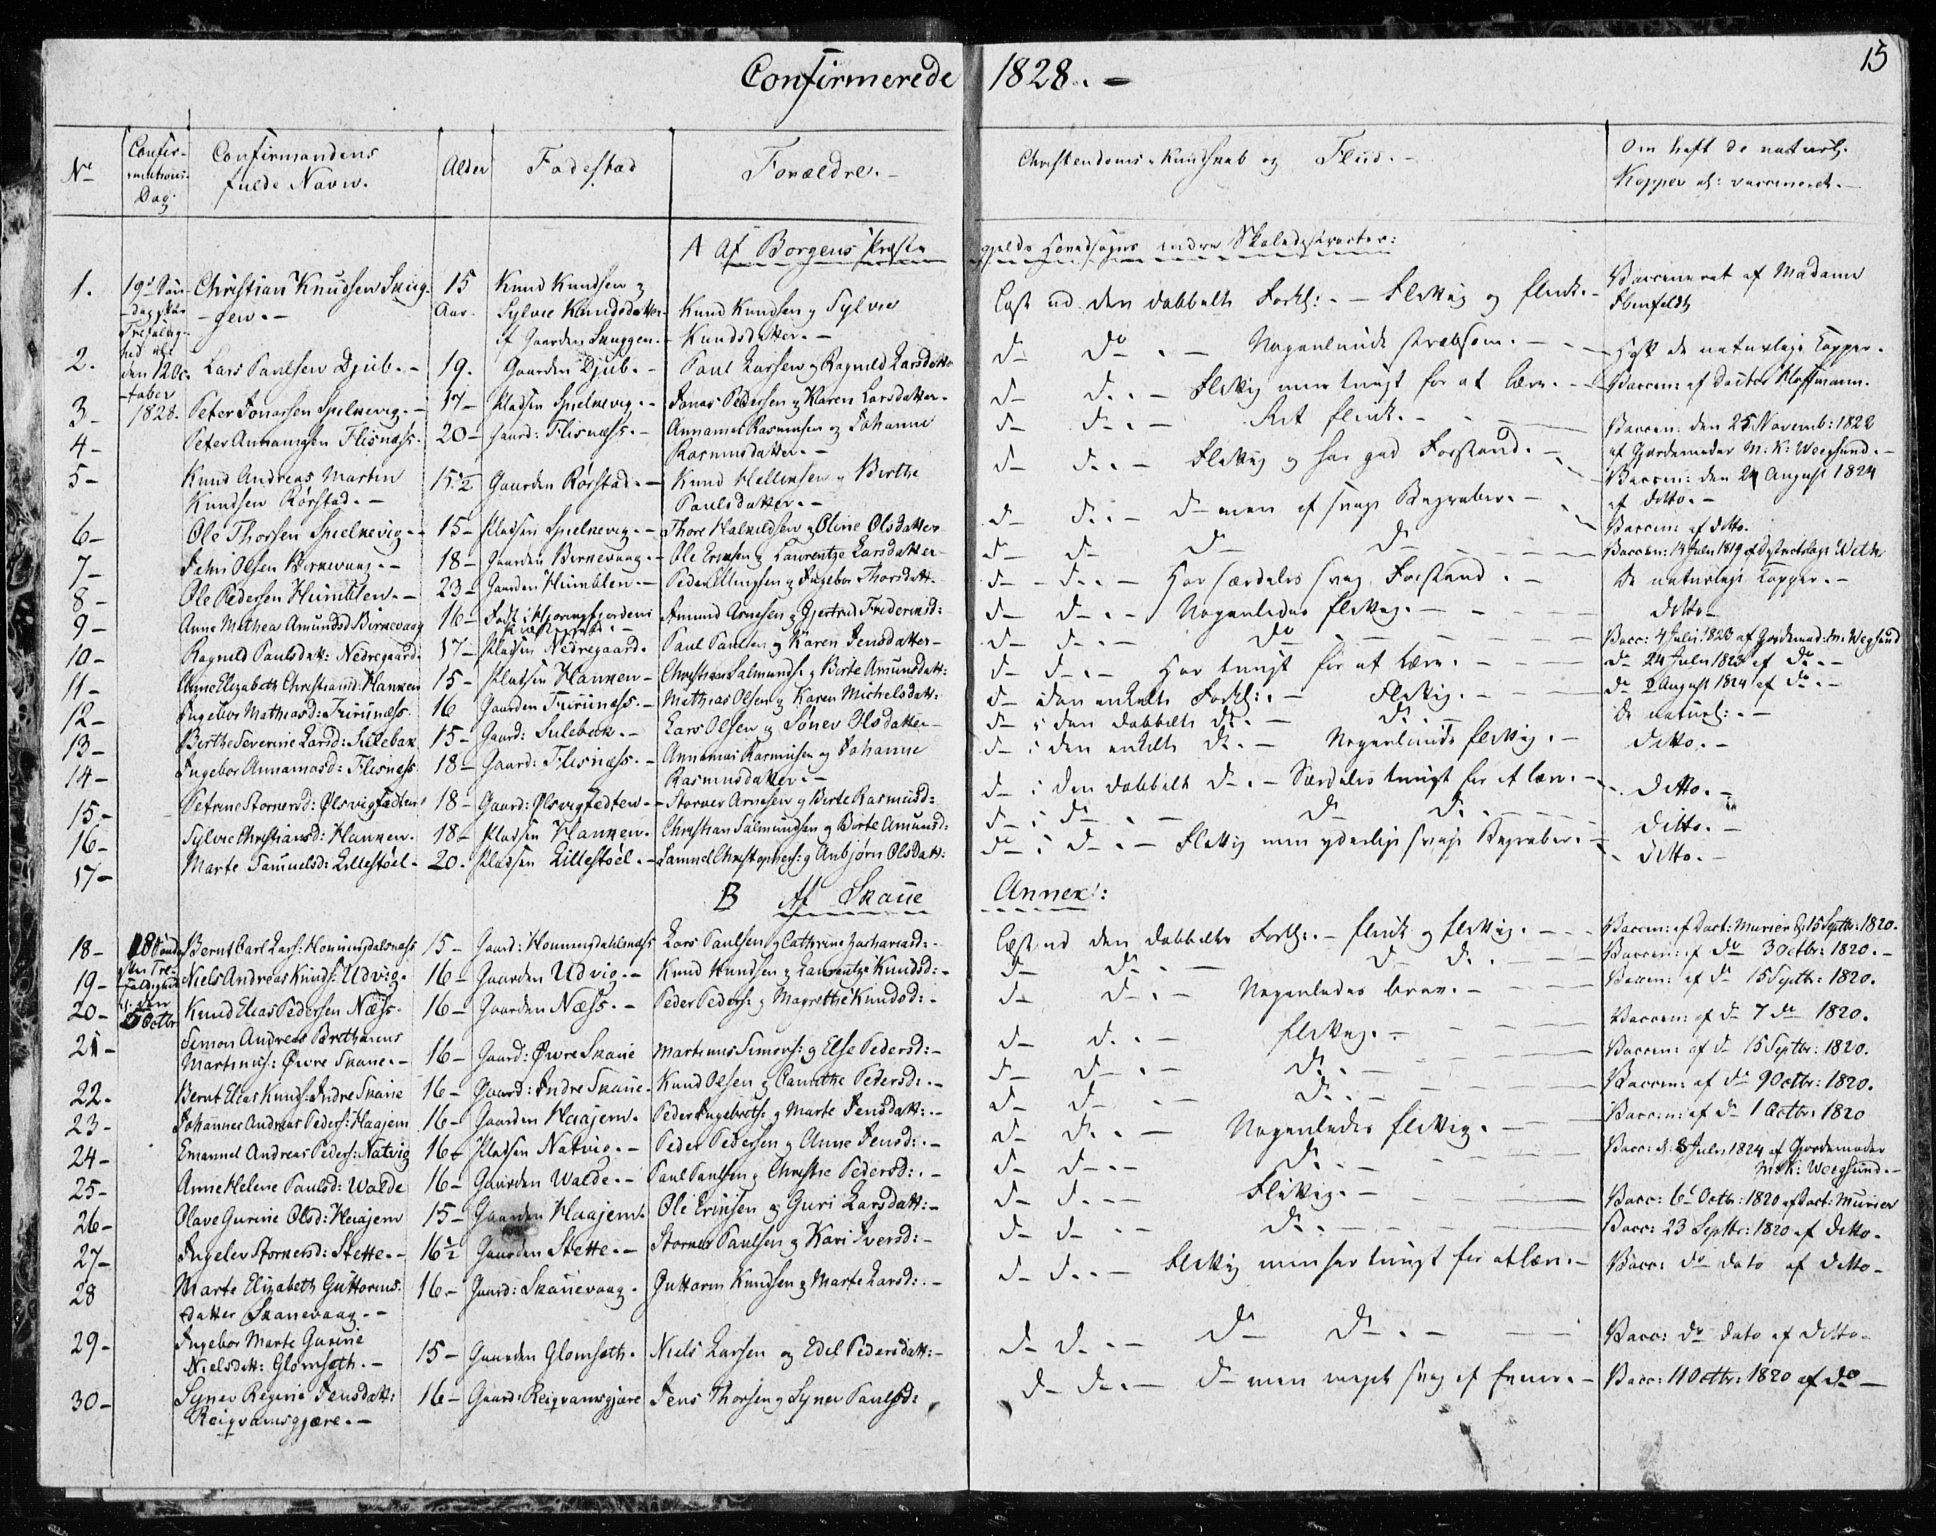 Confirmerede 1828. -
15
No
Confir-
mations
Dag.
Confirmandens
fulde Navn.
Alder
Fødested
Forældre. -
Christendoms-Kundskab og Flid. -
Om haft de naturl.
Kopper el: vaccineret. -
A Af Borgens Præste gjelds Hovedsogns indre Skoledistricter:
1. 19de Søn- Christian Knudsen Skug- 15 Knud Knudsen og Læst ud den dobbelte Forkl: - Flittig og flink. - Vaccineret af Madame
-dag efter -gen. - Aar. Sylvie Knudsdatter Knud Knudsen og Sylvie
Trefoldig- af Gaarden Skuggen. - Knudsdatter. -
2. den 12 Oc- Lars Paulsen Djub. - 19. Gaarden Djub. - Paul Larsen og Ragnild Larsdatter do do. - Nogenlunde stræbsom. - Haft de naturlige Kopper.
-tober
3 - 1828. Peter Jonassen Spelkevig. - 17 - Pladsen Spelkevig. - Jonas Pedersen og Karen Larsdatter. - do do. - Flittig men tungt for at lære. - Vaccin: af Doctor Hoffmann.
4 - Peter Annanias: Flisnæss. 20 - Gaard: Flisnæss. - Annanias Rasmusen og Johanne do do. - Ret flink. - Vaccin: den 25 Novemb: 1822
Rasmusdatter. - af Gjordemoder M. K: Wegsund. -
5 - Knud Andreas Martin 15 1/2 Gaarden Rørstad. - Knud Hellensen og Birthe do do. - Flittig og har god Forstand. - Vaccin: den 24 August 1824
Knudsen Rørstad. - Paulsdatter. - af ditto. -
6 - Ole Thorsen Spelkevig. - 15 - Pladsen Spelkevig. - Thore Halvildsen og Oline Olsdatter do do. - do men af svage Begreber. - Vaccin: af ditto.
7 - Jahn Olsen Birkevaag. - 18 - Gaarden Birkevaag. - Ole Eriksen og Laurentze Larsdatter - do do do do Vaccin: 14 Julii 1819 af Districtslæge Weth
8 - Ole Pedersen Humblen. - 23 - Gaarden Humblen. - Peder Ellingsen og Ingebor Thorsdatt. do - do. - Har særdeles svag Forstand. - De naturlige Kopper. -
9 - Anne Mathea Amundsd Birkevaag 16 - Født i Hjøringfjordens Amund Arnesen og Gjertrud Frederiksd: do do. - Nogenledes flittig. - ditto -
10 - Ragnild Paulsdatt: Nedregaard. 17 - Pladsen Nedregaard. Paul Paulsen og Karen Jensdatter - do do. - do Vacc: 4 Julii 1823 af Gjordemod: M. Wegsund
11 - Anne Elizabeth Christiansd: Hanken 15 - Pladsen Hanken - Christian Salmunds: og Birte Amundsdatt: do do. - Har tungt for at lære. - do 24 Julii 1823 af do. -
12 - Ingebor Mathiasd: Furunæss 16 Gaarden Furunæss. - Mathias Olsen og Karen Michelsdatt: do i den enkelte Forkl: - Flittig. - do 2 August 1824 af do. -
13 - Birthe Severine Larsd: Sulebak 15 - Gaard: Sulebak. - Lars Olsen og Sønev Olsdatter - do i den dobbelte do. - do - De naturl: -
14 - Ingebor Annaniasd: Flisnæss 18 - Gaard: Flisnæss. - Annanias Rasmusen og Johanne do i den enkelte do. - Nogenlunde flittig. - ditto. -
Rasmusdatter. -
15. - Petrine Stornersd: Ølsvigfedten 18 - Gaard: Ølsvigfedten - Storner Arnesen og Birte Rasmusd: do i den dobbelt do. - Særdeles tungt for at lære. - ditto. -
16 - Sylvie Christiansd: Hanken. 18 - Pladsen Hanken. Christian Salmundsen og Birte Amunsd: do i do. - do do. ditto. -
17 - Marte Samuelsd: Lillestøel - 20. Pladsen Lillestoel. - Samuel Christophers: og Anbjørn Olsdatt: do i do. - Flittig men yderlige svage Begreber. - ditto. -
B Af Skaue Annex:
18 - 18 Sønd: Bernt Carl Lars: Honningsdalsnæss 15 - Gaard: Honningdahlsnæss Lars Paulsen og Cathrine Zachariasd: - Læst ud den dobbelte Forkl: - flink og flittig. - Vaccin: af Doct: Murier d. 15 Septbr: 1820.
efter Tre-
19 - foldighed Niels Andreas Knuds: Udvig. 16 - Gaarden Udvig. - Knud Knudsen og Laurentze Knudsd: - do do. - do do. Vaccin: af do 3 Octbr: 1820. -
20 - den 5 Octbr Knud Elias Pedersen Næss. 16 - Gaarden Næss. - Peder Peders: og Magrethe Knudsd: - do do. - Nogenledes brav. - Vaccin: af do 15 Septbr: 1820.
21 - Simon Andreas Brethanus
Martinus: Øvre Skaue. - 16 - Gaard: Øvre Skaue Martinus Simons: og Else Pedersd: - do do. - flittig. - Vaccin: af do 7 do 1820.
22. Bernt Elias Knuds: Indre Skaue 16 - Gaard: Indre Skaue - Knud Olsen og Canutte Pedersd: - do do. - do. - Vaccin: af do 15 Septbr: 1820.
23 - Johannes Andreas Peders: Haajem 16 - Gaarden Haajem. - Peder Ingebrets: og Marte Jensdatt: - do do. - do. - Vaccin: af do 9 Octbr: 1820.
24 - Emanuel Andreas Peders: Natvig 16 - Pladsen Natvig. - Peder Pedersen og Anne Jensd: - do do. - Nogenledes flittig. - Vaccin: af do 1 Octbr: 1820
25 - Anne Helene Paulsd: Walde 16 - Gaarden Walde. - Paul Paulsen og Christie Pedersd: - do do. - do. - Vacc: d: 8 Julii 1824 af Gjordemoder
M. K: Wegsund. -
26 - Olave Gurine Olsd: Haajem 15 - Gaarden Haajem. Ole Eriksen og Guri Larsdatt: - do do. - Flittig. - Vacc: 6 Octbr: 1820 af Doct: Murier
27 - Ingelev Stornersd: Stette. - 16 1/2 Gaarden Stette. - Storner Paulsen og Kari Iversd: - do do - do. - Vacc: 23 Septbr: 1820 af ditto.
28 Marte Elizabeth Guttorms: 16 - Gaard: Skauevaag. Guttorm Knudsen og Marte Larsd: - do do. - Flittig men har tungt for at lære. - Vacc: do dato af ditto -
datter Skauevaag. -
29 - Ingebor Marte Gurine
Nielsdatt: Glomseth. - 15 - Gaarden Glomseth. Niels Larsen og Edel Pedersdatt: - do do. - do do. - Vacc: do dato af ditto.
30 - Synev Regine Jensdatt: 16 - Gaard: Reiqvamsgjære Jens Thorsen og Synev Paulsd: do do. - do men meget svag af Evner. - Vacc: 11 Octbr: 1820 af do -
Reiqvamsgjære. -